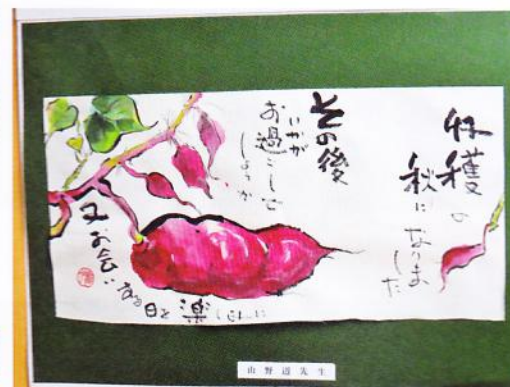 収穫の
秋になりま
した
その後
いかが
お過ごしで
しょうか
又お会いする日を楽しみに
山野道先生